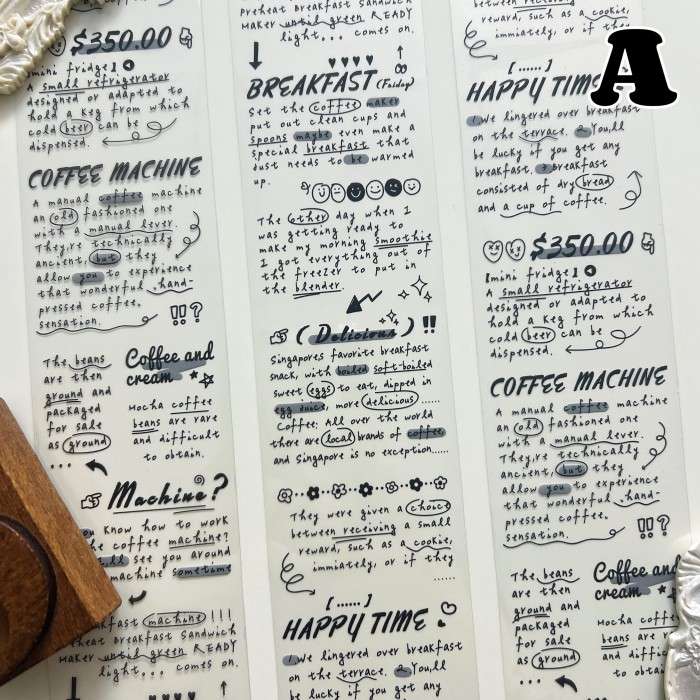 $350.00
[mini fridge]
A small refrigerator
designed or adapted to
hold a keg from which
cold beer can be
dispensed.
COFFEE MACHINE
A manual coffee machine
an old fashioned one
with a manual lever.
They,re technically
ancient, but they
allow you to experience
that wonderful ,hand-
pressed coffee,
sensation.
!!?
The beans
are then
ground and
packaged
for sale
as ground
...
Coffee and
cream
Mocha coffee
beans are rare
and difficult
to obtain.
Machine?
you know how to work
the coffee machine?
see you around
machine sometime
Breakfast machine !!!
Preheat Breakfast Sandwich
Maker until green READY
light... comes on.
Preheat Breakfast Sandwich
Maker until green READY
light... comes on.
BREAKFAST (Friday)
Set the coffee maker
put out clean cups and
spoons maybe even make a
special breakfast that
just needs to be warmed
up.
The other day when I
was getting ready to
make my morning smoothie
I got everything out of
the freezer to put in
the blender.
( Delicious ) !!
Singapores favorite breakfast
snack, with boiled soft-boiled
sweet eggs to eat, dipped in
egg juice, more delicious ......
Coffee: All over the world
there are local brands of coffee
and Singapore is no exception......
They were given a choice
between receiving a small
reward, such as a cookie,
immiately, or if they
......
[ ...... ]
HAPPY TIME
1 We lingered over breakfast
on the terrace. 2 You,ll
be lucky if you get any
between receiving
reward, such as a cookie,
immiately, or if they
A
[ ...... ]
HAPPY TIME
1 We lingered over breakfast
on the terrace. 2 You,ll
be lucky if you get any
breakfast. 3 breakfast
consisted of dry bread
and a cup of coffee.
$350.00
[mini fridge]
A small refrigerator
designed or adapted to
hold a keg from which
cold beer can be
dispensed.
COFFEE MACHINE
A manual coffee machine
an old fashioned one
with a manual lever.
They,re technically
ancient, but they
allow you to experience
that wonderful ,hand-
pressed coffee,
sensation.
!!?
The beans
are then
ground and
packaged
for sale
as ground
...
Coffee and
cream
Mocha coffee
beans are
and
to